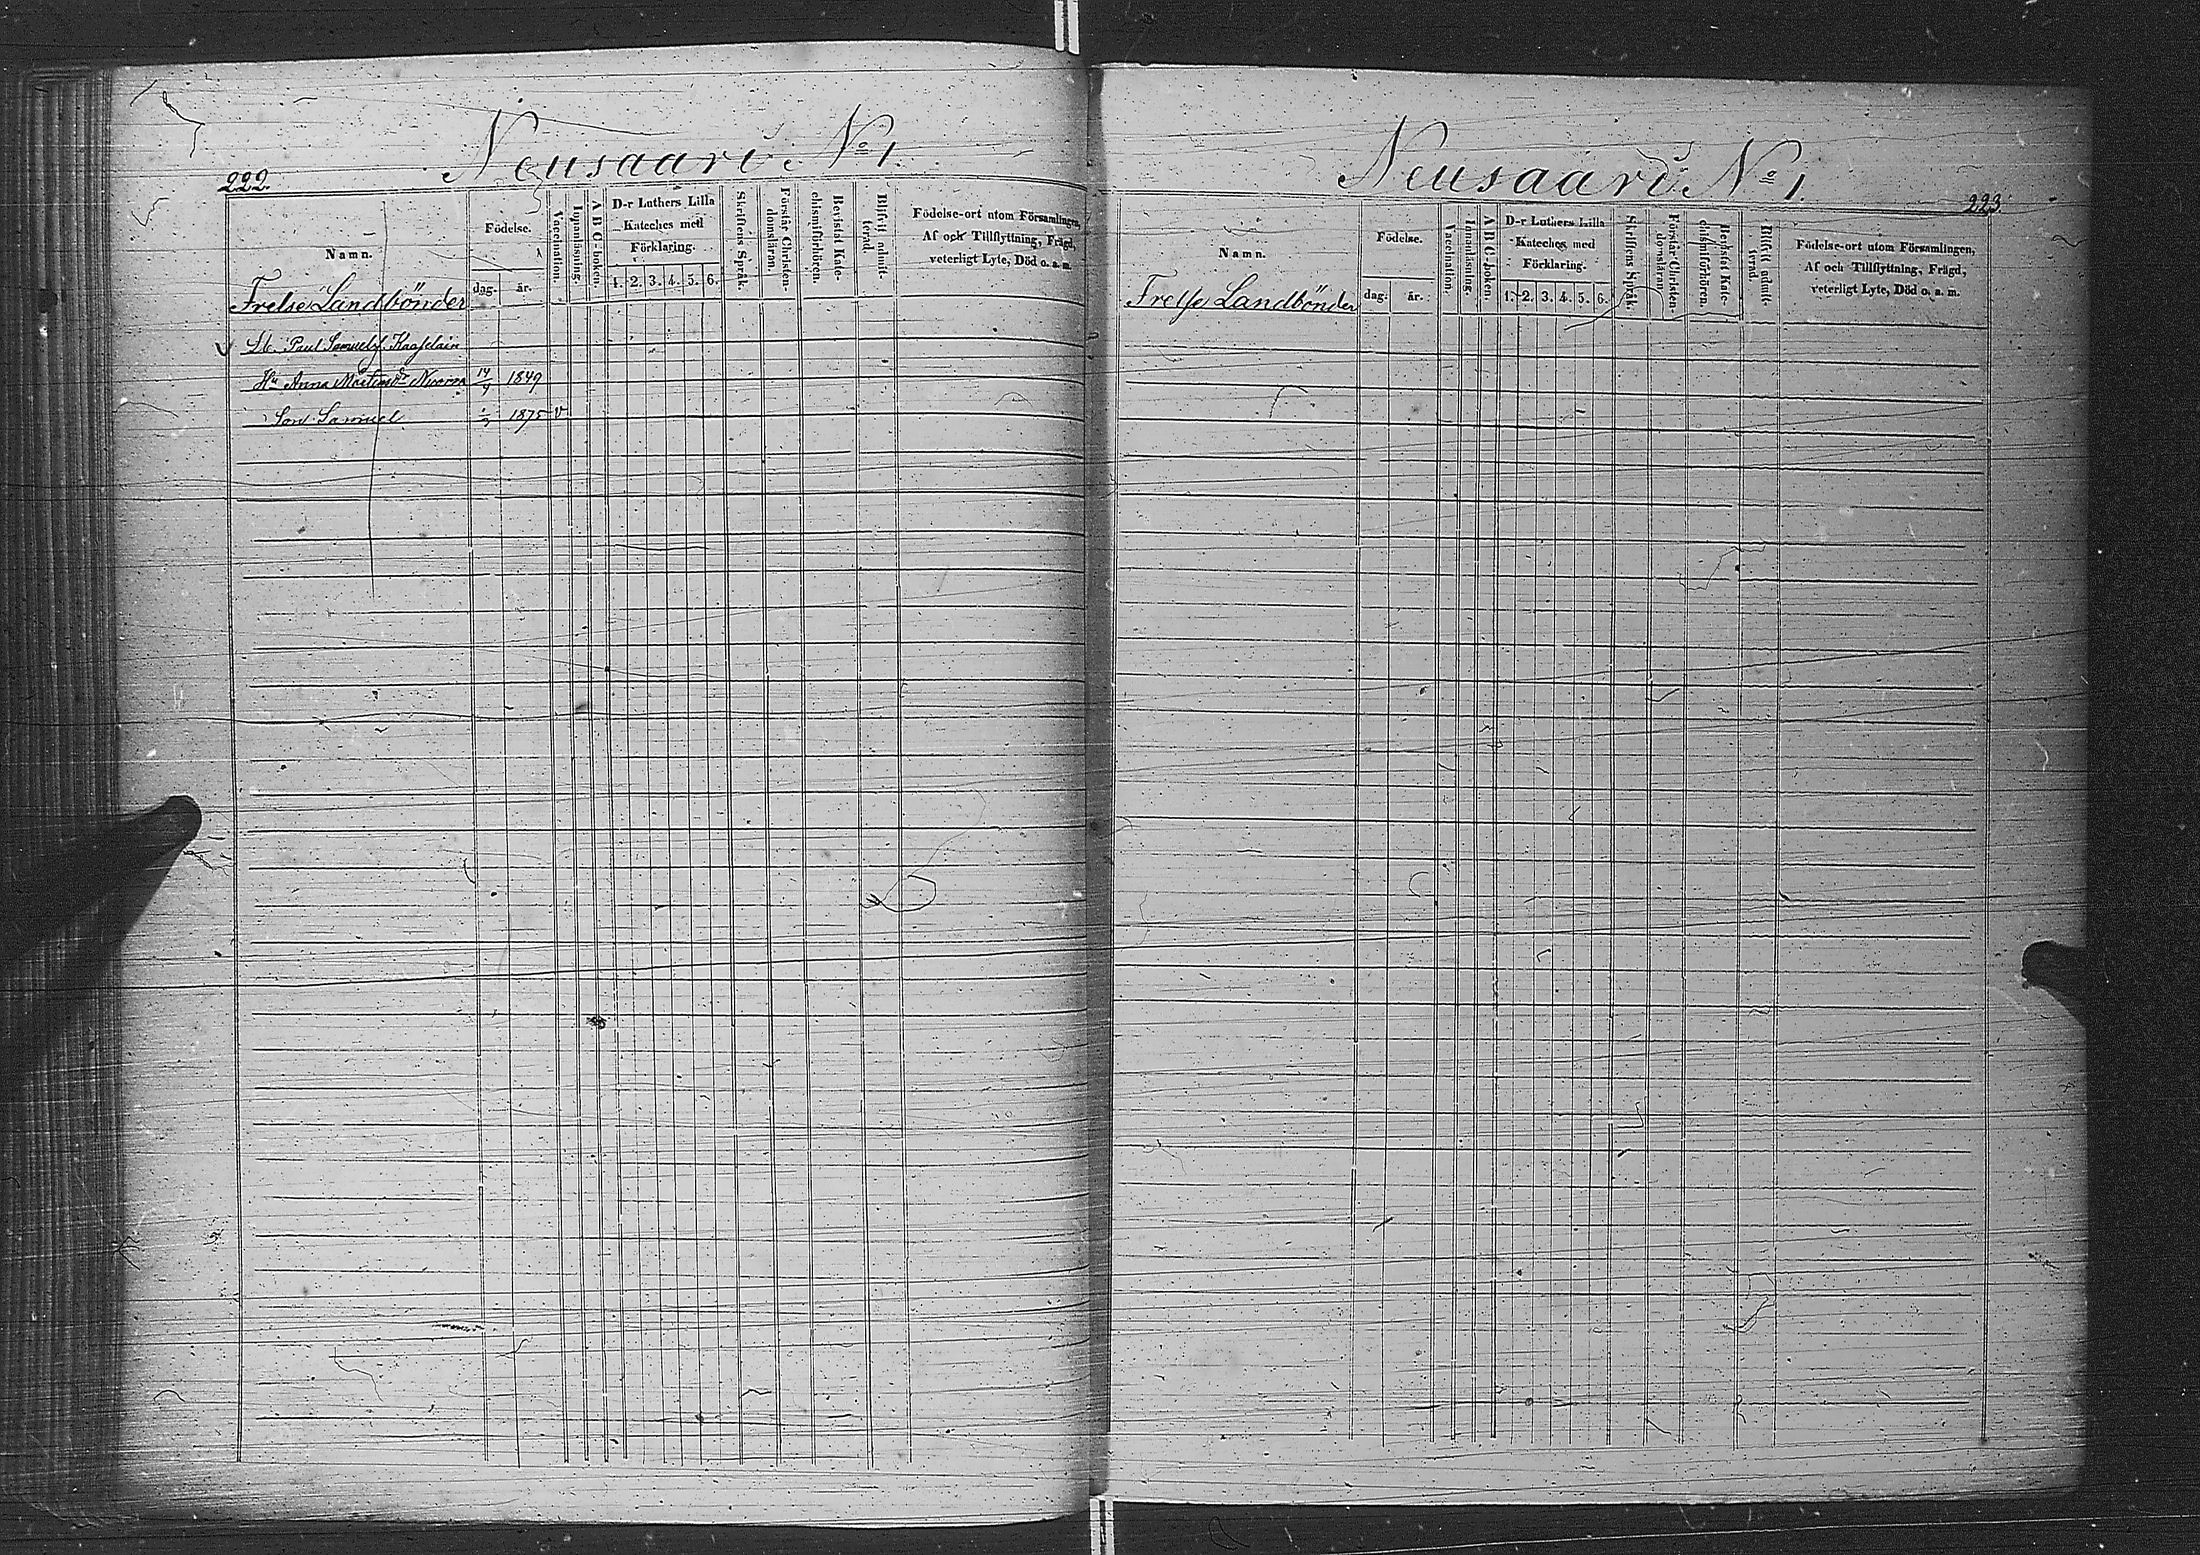 222.
Neusaari No 1.
Namn.
Födelse.
dag.
år.
Vaccination.
Innanläsning.
A B C-boken.
D-r Luthers Lilla
Kateches med
Förklaring.
1. 2. 3. 4. 5. 6.
Skriftens Språk.
Förstår Christen-
domsläran.
Bevistat Kate-
chismiförhören.
Blifvit admit-
terad.
Födelse-ort utom Församlingen,
Af och Tillflyttning, Frägd,
veterligt Lyte, Död o. a. m.
Frelse Landbönder
Lb. Paul Samuels.
Hu Anna Mårtensdr 1849
Son Samuel 1875 v
Neusaari No 1.
223.
Namn.
Födelse.
dag.
år.
Vaccination.
Innanläsning.
A B C-boken.
D-r Luthers Lilla
Kateches med
Förklaring.
1. 2. 3. 4. 5. 6.
Skriftens Språk.
Förstår Christen-
domsläran.
Bevistat Kate-
chismiförhören.
Blifvit admit-
terad.
Födelse-ort utom Församlingen,
Af och Tillflyttning, Frägd,
veterligt Lyte, Död o. a. m.
Frelse Landbönder